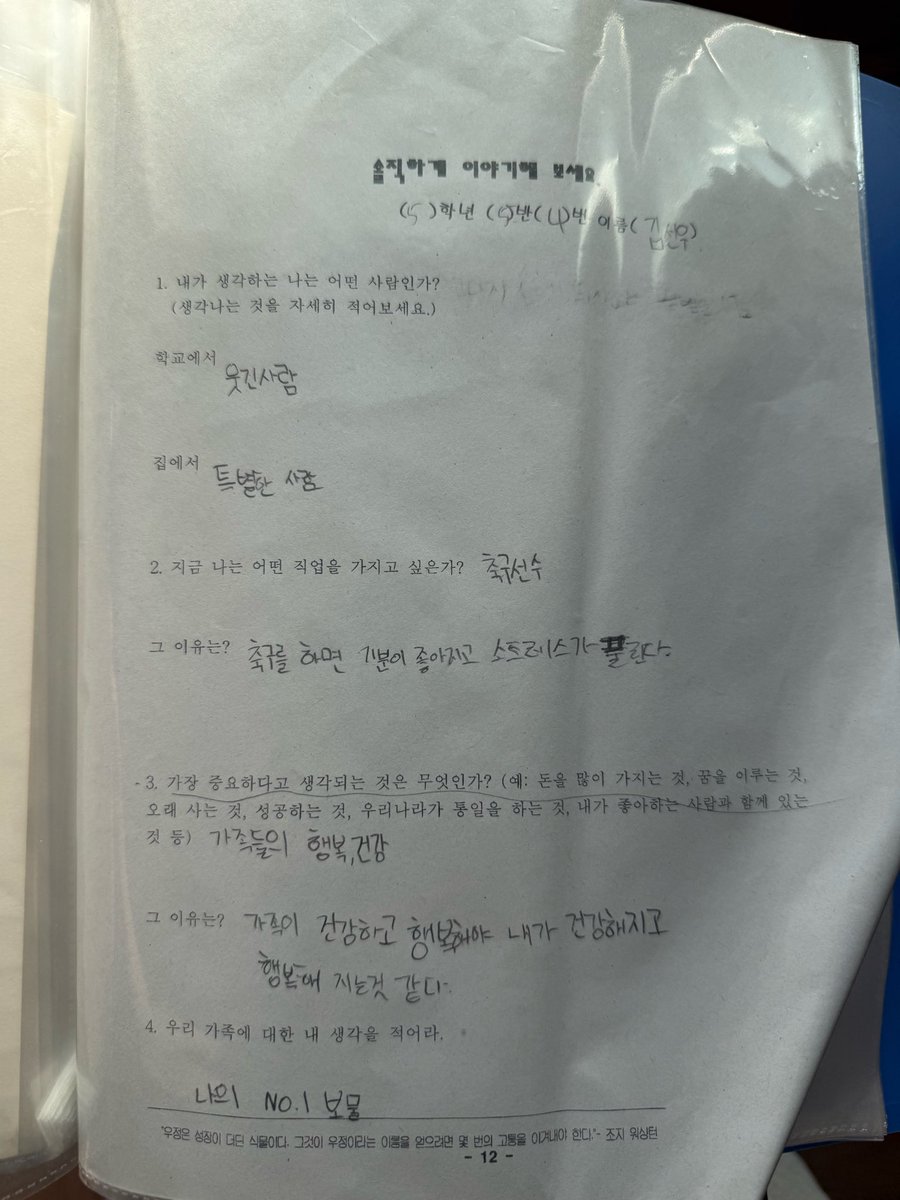 솔직하게 이야기해 보세요
(5)학년 (5)반(4)번 이름(김선우)
1. 내가 생각하는 나는 어떤 사람인가?
(생각나는 것을 자세히 적어보세요.)
학교에서
웃긴사람
집에서
특별한 사람
2. 지금 나는 어떤 직업을 가지고 싶은가? 축구선수
그 이유는? 축구를 하면 기분이 좋아지고 스트레스가 풀린다.
3. 가장 중요하다고 생각되는 것은 무엇인가? (예: 돈을 많이 가지는 것, 꿈을 이루는 것,
오래 사는 것, 성공하는 것, 우리나라가 통일을 하는 것, 내가 좋아하는 사람과 함께 있는
것 등) 가족들의 행복,건강
그 이유는? 가족이 건강하고 행복해야 내가 건강해지고
행복해 지는것 같다.
4. 우리 가족에 대한 내 생각을 적어라.
나의 NO.1 보물
"우정은 성장이 더딘 식물이다. 그것이 우정이라는 이름을 얻으려면 몇 번의 고통을 이겨내야 한다."- 조지 워싱턴
- 12 -